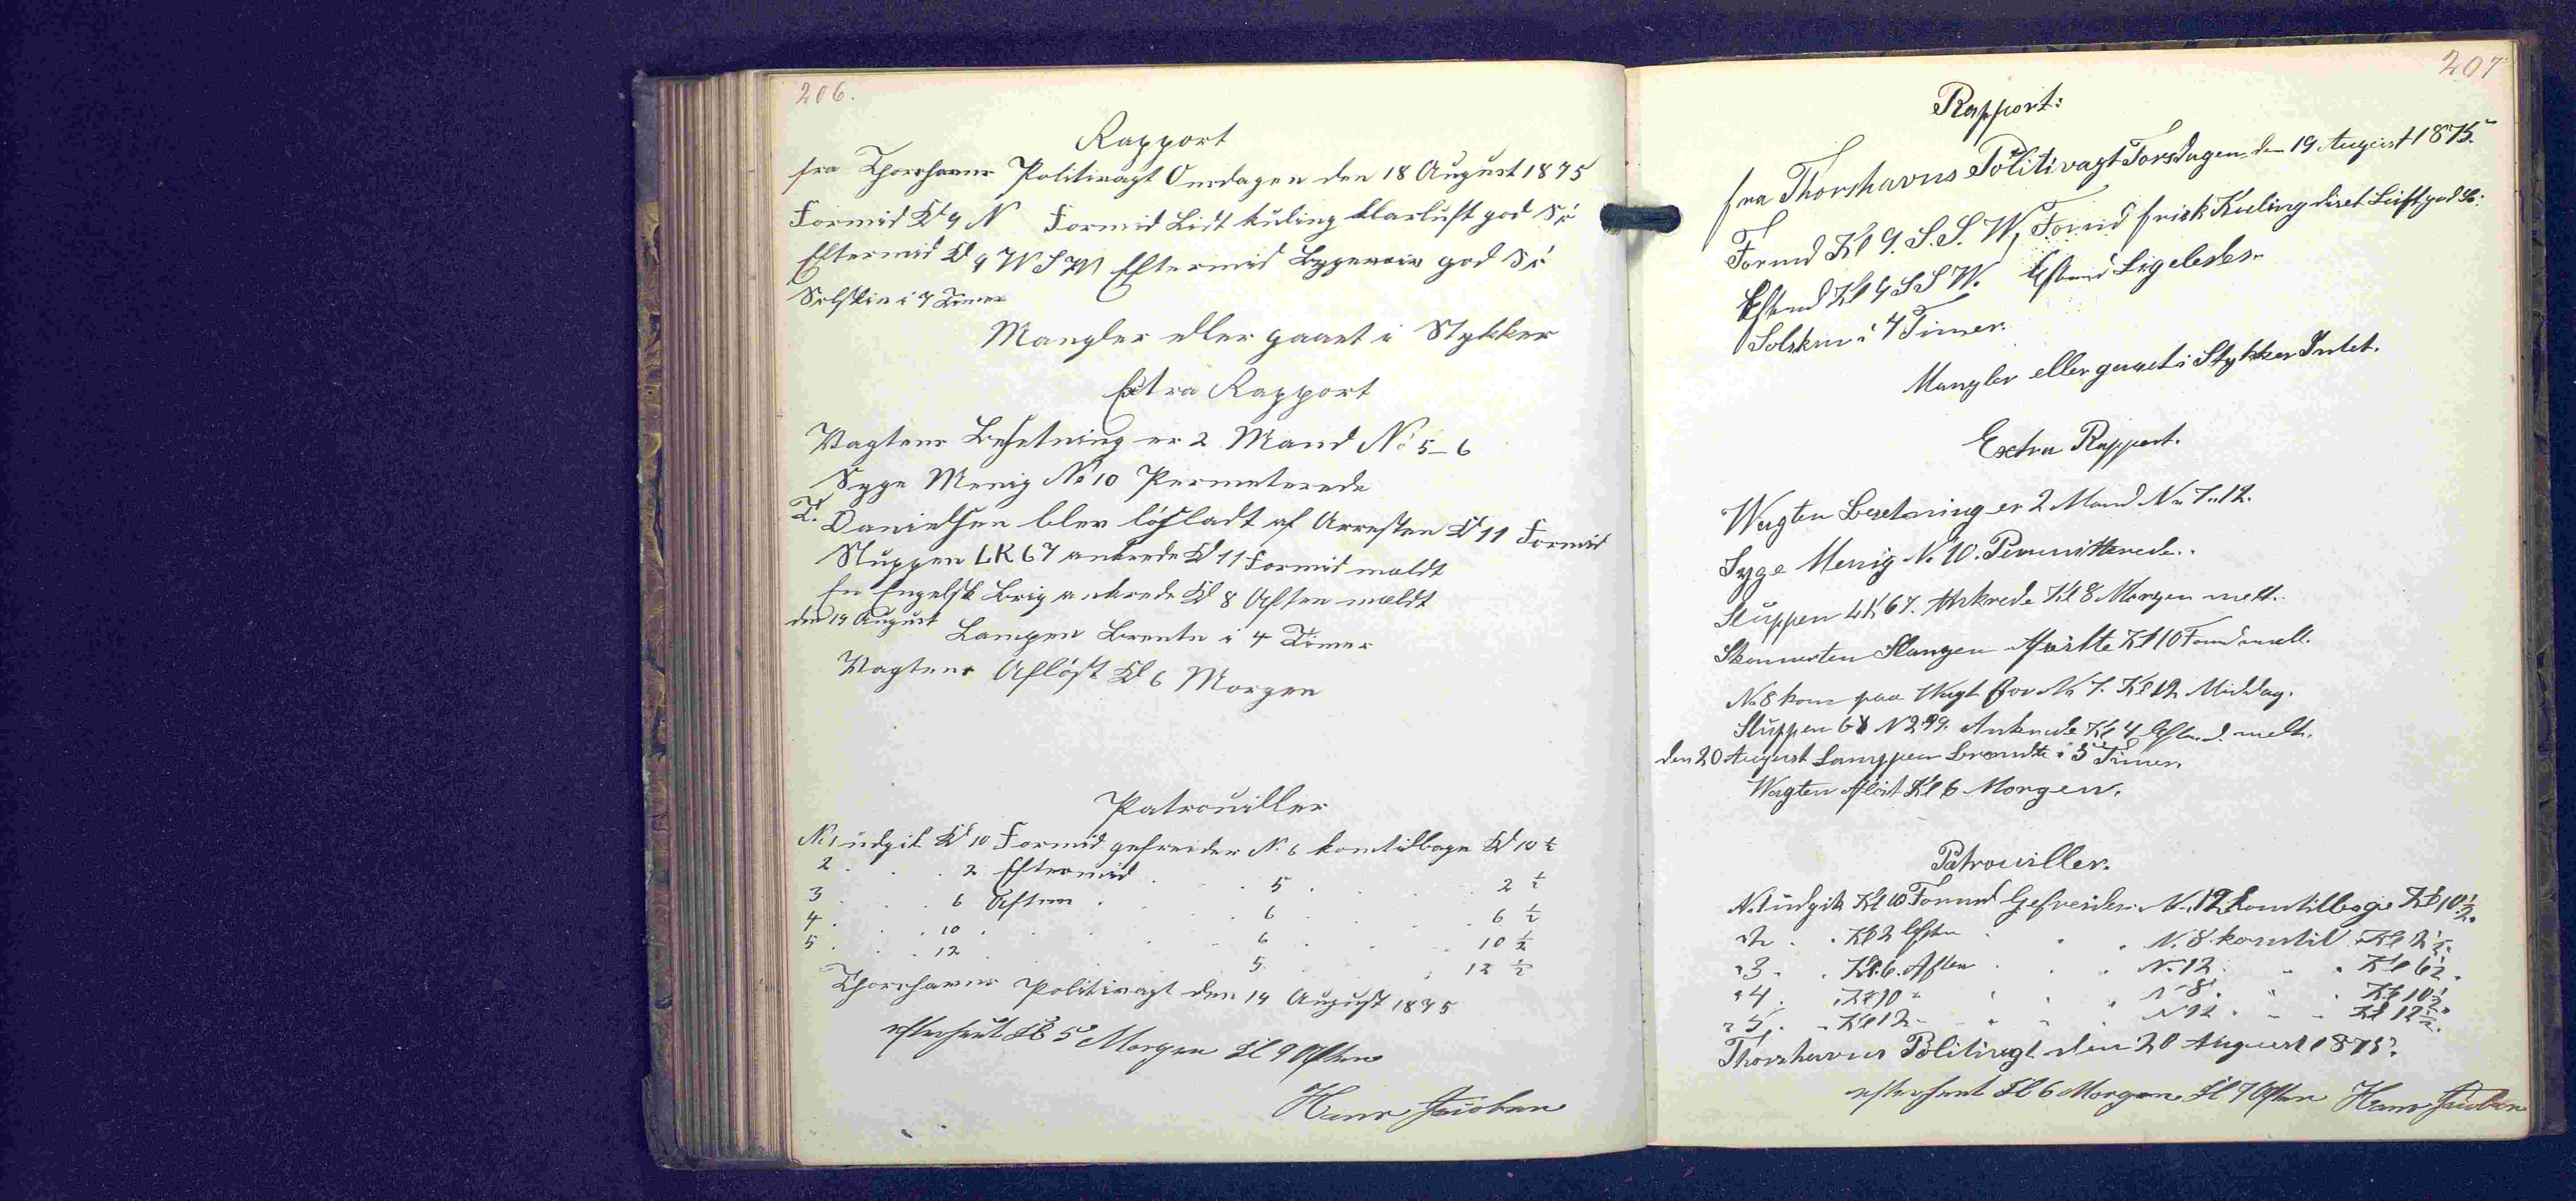 206.
Rapport
fra Thorshavns Politivagt Onsdagen den 18 August 1875
Formid Kl 9 N Formid Lidt Kuling klarluft god Sö
Eftermid Kl 4 W S W Eftermid god Sö
Solskin i 7 Timer
Mangler eller gaaet i Stykker
Extra Rapport
Vagtens Besetning er 2 Mand No 5-6
Syge Menig No 10 Permeterede
Danielsen blev lösladt af Arresten Kl 11 Formid
Sluppen LK 67 ankrede Kl 11 Formid meldt
En Engelsk Brig ankrede Kl 8 Aften meldt
den 19 August Lampen Brente i 4 Timer
Vagtens Aflöst Kl 6 Morgen
Patrouiller
No 1 udgik Kl 10 Formid gefreider No 6 komtilbage Kl 10 ½
2 . . . 2 Eftermid . . 5 . . 2 ½
3 . . . 6 Aften . . 6 . . 6 ½
4 . . . 10 . . 6 . . 10 ½
5 . . . 12 . . 5 . . 12 ½
Thorshavns Politivagt den 19 August 1875
efterseet Kl 5 Morgen Kl 9 Aften
Hans
207
Rapport:
fra Thorshavns Politivagt Torsdagen den 19 August 1875.
Formd Kl 9. S.S.W, Formd frisk Kuling diset Luft god Sö:
Eftmd Kl 4 S S W. Eftmd Ligeledes.
Solskin i 4 Timer.
Mangler eller gaaet i Stykker Intet.
Extra Rapport.
Wagten Besetning er 2 Mand No 7..12.
Syge Menig No 10. Permitterede.
Sluppen LK 67. Ankrede Kl 8 Morgen melt.
Skonnerten Slangen Kl 10 Formd melt.
No 8 kom paa Wagt for No 7. Kl 12 Middag.
Sluppen N 299. Ankrede Kl 4 Eftmd. melt.
den 20 August Lamppen Brendte i 5 Timer,
Wagten Aflöst Kl 6 Morgen.
Patrouiller.
No 1 udgik Kl 10 Formd Gefreider No 12 komtilbage Kl 10 ½.
" 2 . . Kl 2 Eften . . No 8 komtil Kl 2 ½.
" 3 . . Kl. 6. Aften . . No 12 . . Kl 6 ½.
" 4 . . Kl 10 " . . No 8. . . Kl 10 ½
" 5, . . Kl 12 . . No 12 . . Kl 12 ½.
Thorshavns Politivagt den 20 August 1875.
efterseet Kl 6 Morgen Kl 9 Aften Hans